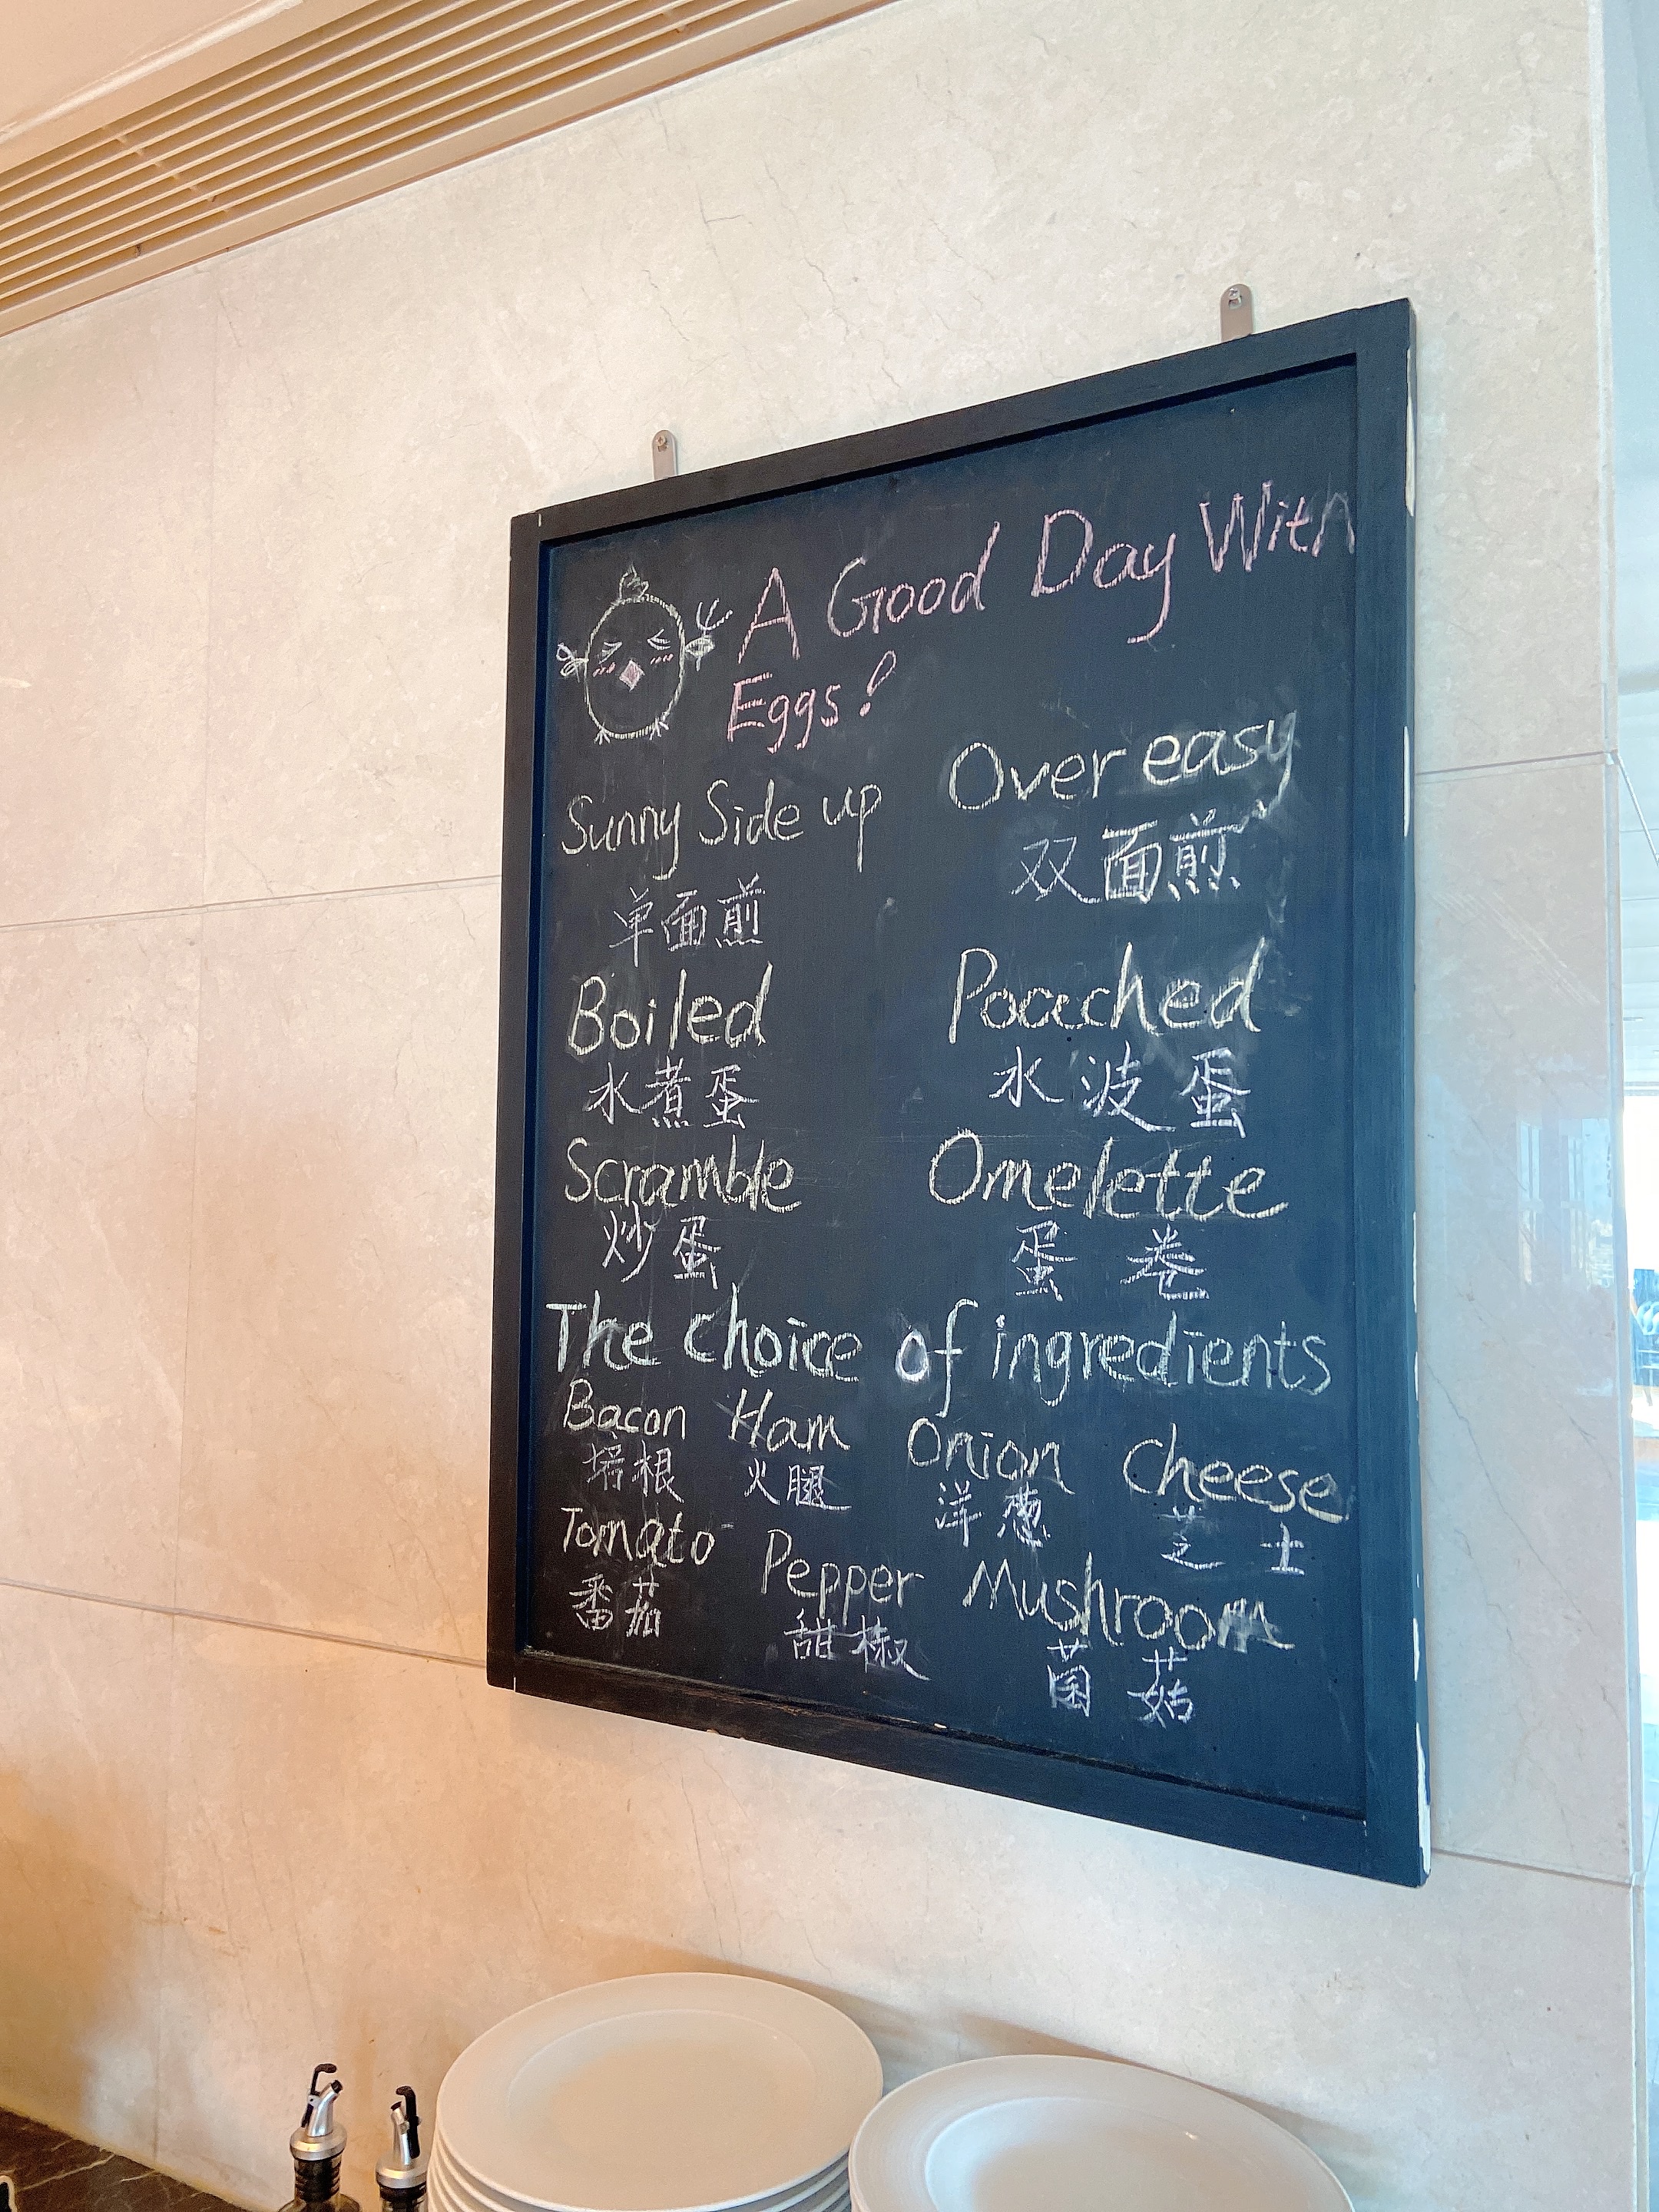 A Good Day With
Eggs!
Sunny Side up
Over easy
单面煎
双面煎
Boiled
Poached
水煮蛋
水波蛋
Scramble
Omelette
炒蛋
蛋 卷
The choice of ingredients
Bacon Ham Onion cheese
培根 火腿 洋葱 芝士
Tomato Pepper Mushroom
番茄 甜椒 菌菇